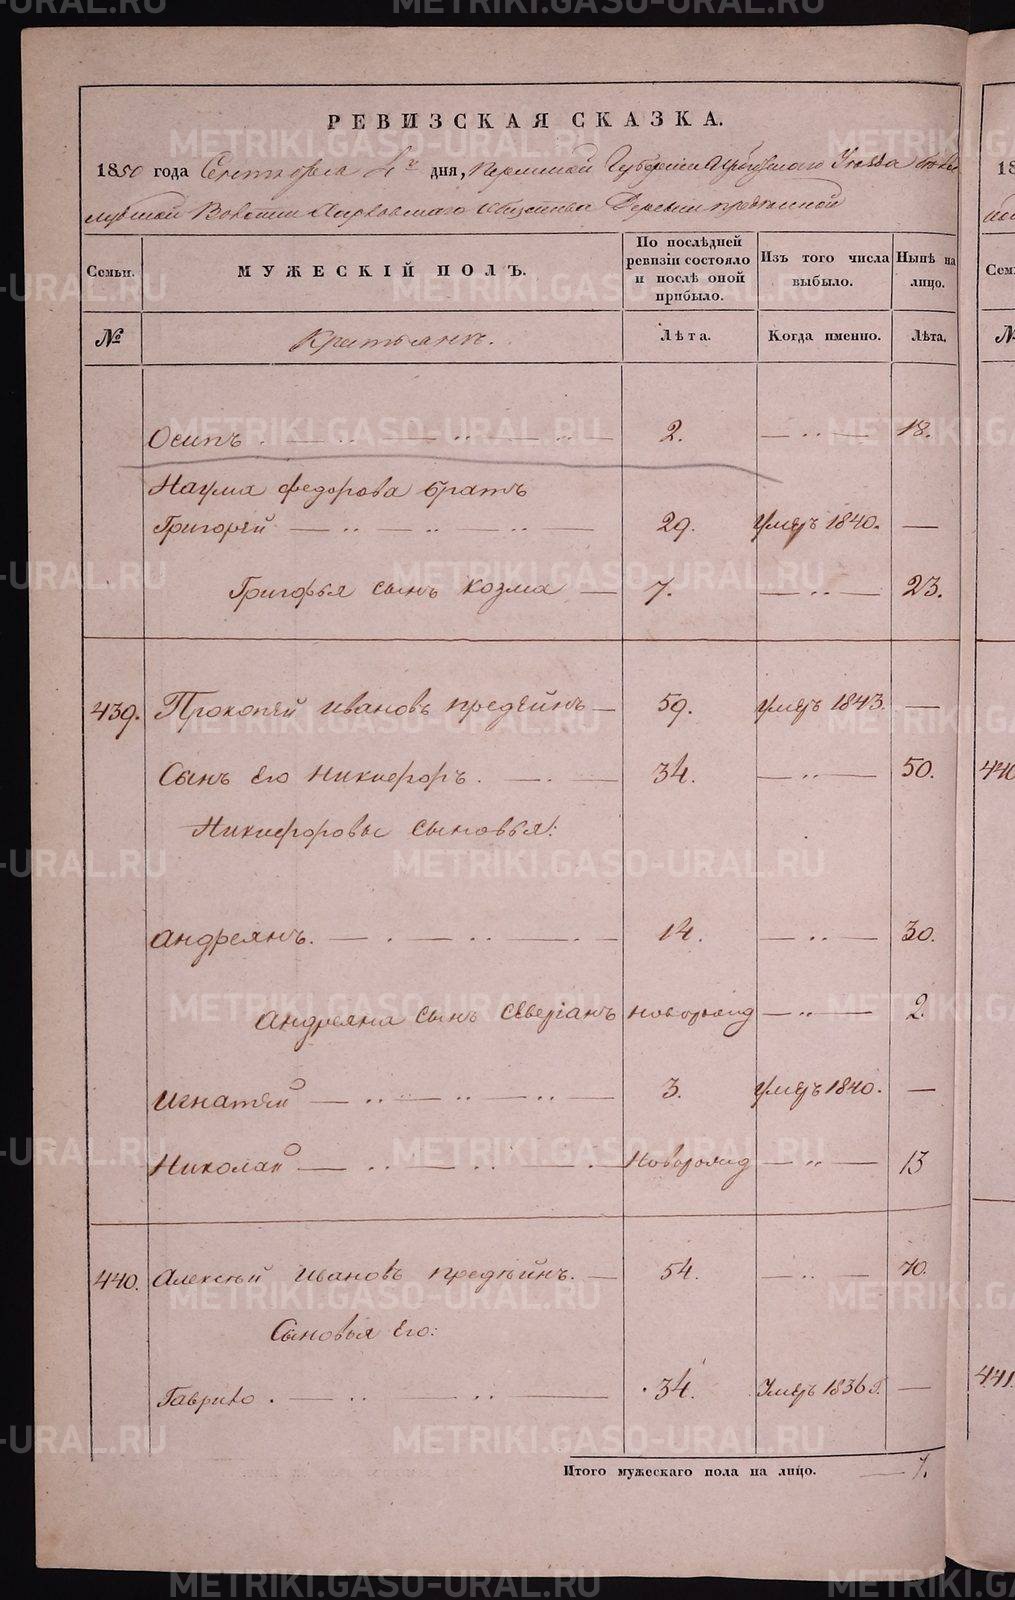 РЕВИЗСКАЯ СКАЗКА.
1850 года Сентября 4го дня, Пермской Губернии Ирбитского Уезда
Волости Харловскаго Общества Деревни Предѣиной
Семьи. МУЖЕСКІЙ ПОЛЪ. По послѣдней ревизіи состояло и послѣ оной прибыло. Изъ того числа выбыло. Нынѣ на лицо.
№ Крестьянъ. Лѣта. Когда именно. Лѣта.
Осипъ. 2. 18.
Наума Федорова братъ
Григорей 29. умеръ 1840.
Григорья сынъ Козма 7. 23.
439. Прокопей Ивановъ Предѣинъ 59. умеръ 1843.
Сынъ Его Никифоръ. 34. 50.
Никифоровы сыновья:
Андреянъ. 14. 30.
Андреяна сынъ Северіанъ новорожд 2.
Игнатей 3. умеръ 1840.
Николай Новорожд 13
440. Алексей Ивановъ Предѣинъ. 54. 70.
Сыновья Его:
Гаврило. 34. Умеръ 1836 г.
Итого мужескаго пола на лицо. 7.
METRIKI.GASO-URAL.RU